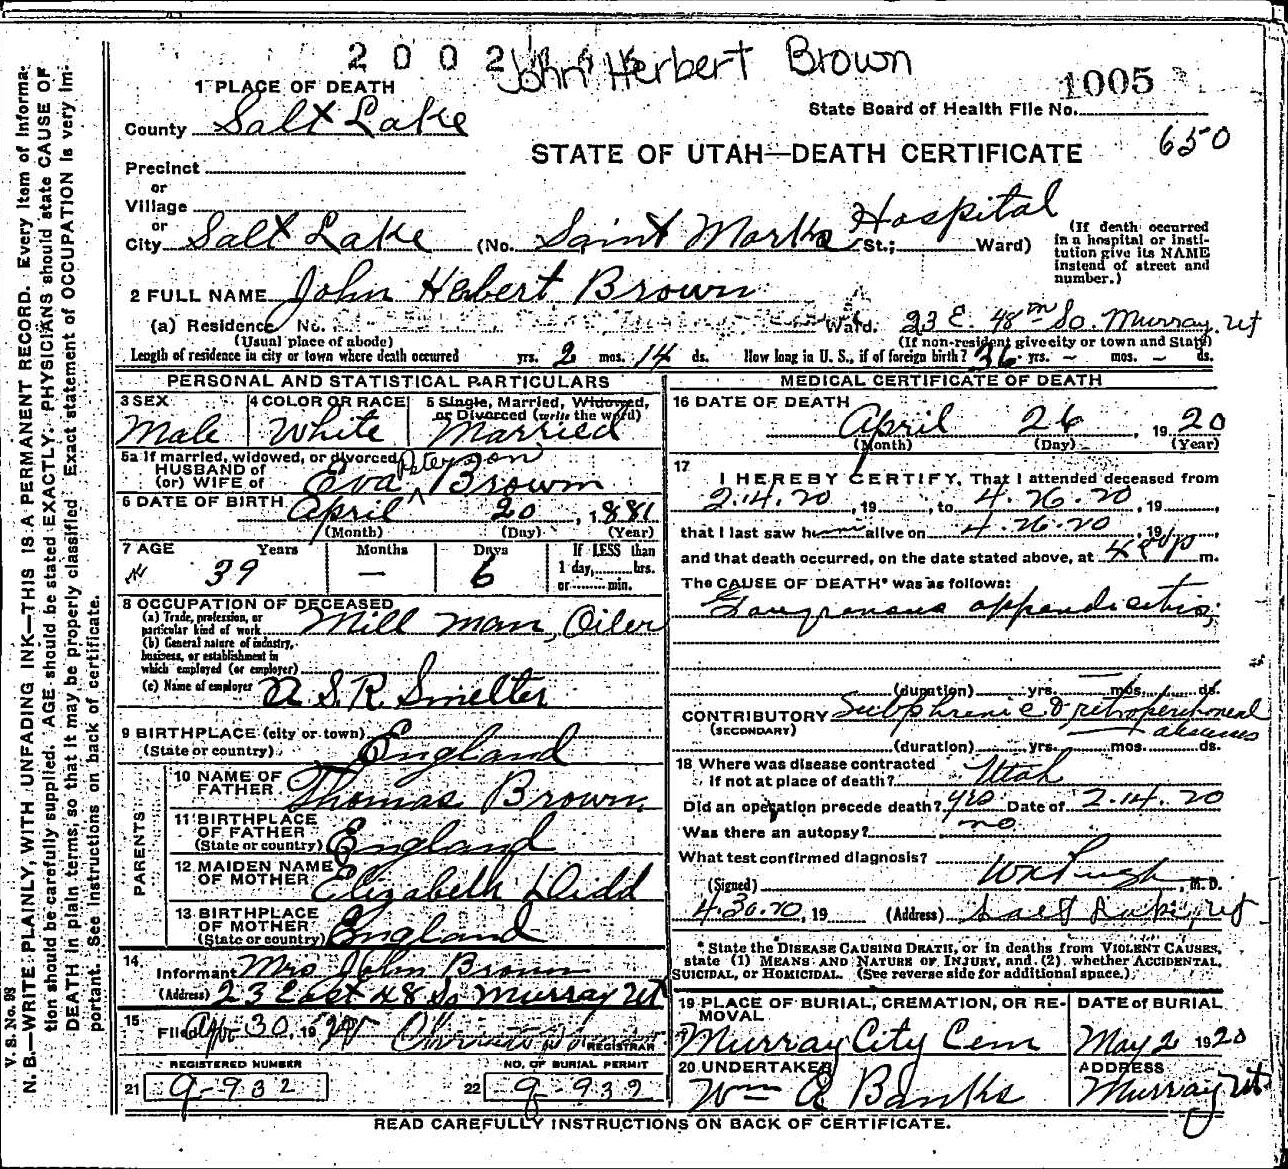 2002
John Herbert Brown
1005
State Board of Health File No.
650
1 PLACE OF DEATH
County Salt Lake
STATE OF UTAH—DEATH CERTIFICATE
Precinct
or
Village
or
City Salt Lake (No. Saint Marks Hospital St.; Ward)
(If death occurred in a hospital or insti-
tution give its NAME
instead of street and
number.)
2 FULL NAME John Herbert Brown
(a) Residence No. Ward. 23 E. 48th So. Murray, Ut
(Usual place of abode) (If non-resident give city or town and State)
Length of residence in city or town where death occurred yrs. 2 mos. 14 ds. How long in U. S., if of foreign birth? 36 yrs. – mos. – ds.
PERSONAL AND STATISTICAL PARTICULARS
3 SEX Male
4 COLOR OR RACE White
5 Single, Married, Widowed,
or Divorced (write the word)
Married
5a If married, widowed, or divorced
HUSBAND of
(or) WIFE of Eva Peterson Brown
6 DATE OF BIRTH April 20, 1881
(Month) (Day) (Year)
7 AGE Years Months Days If LESS than
39 — 6 1 day, hrs.
or min.
8 OCCUPATION OF DECEASED
(a) Trade, profession, or
particular kind of work Mill man, Oiler
(b) General nature of industry,
business, or establishment in
which employed (or employer)
(c) Name of employer A. S. R. Smelter
9 BIRTHPLACE (city or town)
(State or country) England
PARENTS
10 NAME OF
FATHER Thomas Brown
11 BIRTHPLACE
OF FATHER
(State or country) England
12 MAIDEN NAME
OF MOTHER Elizabeth Didd
13 BIRTHPLACE
OF MOTHER
(State or country) England
14
Informant Mrs John Brown
(Address) 23 East 48 So Murray Ut
15
Filed Apr 30, 1920
REGISTRAR
REGISTERED NUMBER NO. OF BURIAL PERMIT
21 9-932 22 9-932
MEDICAL CERTIFICATE OF DEATH
16 DATE OF DEATH
April 26, 1920
(Month) (Day) (Year)
17
I HEREBY CERTIFY, That I attended deceased from
2.14.20, 19, to 4.26.20, 19,
that I last saw him alive on 4.26.20, 19,
and that death occurred, on the date stated above, at m.
The CAUSE OF DEATH* was as follows:
Gangrenous appendicitis;
(duration) yrs. mos. ds.
CONTRIBUTORY Subphrenic & retroperitoneal
(SECONDARY) abscesses
(duration) yrs. mos. ds.
18 Where was disease contracted
if not at place of death? Utah
Did an operation precede death? yes Date of 2.14.20
Was there an autopsy? no
What test confirmed diagnosis?
(Signed) , M. D.
4.30.20, 19 (Address) Salt Lake, Ut
*State the DISEASE CAUSING DEATH, or in deaths from VIOLENT CAUSES,
state (1) MEANS AND NATURE OF INJURY, and (2) whether ACCIDENTAL,
SUICIDAL, or HOMICIDAL. (See reverse side for additional space.)
19 PLACE OF BURIAL, CREMATION, OR RE-
MOVAL
Murray City Cem
DATE of BURIAL
May 2 1920
20 UNDERTAKER
Wm A Banks
ADDRESS
Murray Ut
READ CAREFULLY INSTRUCTIONS ON BACK OF CERTIFICATE.
V. S. No. 98
N. B.—WRITE PLAINLY, WITH UNFADING INK—THIS IS A PERMANENT RECORD. Every item of informa-
tion should be carefully supplied. AGE should be stated EXACTLY. PHYSICIANS should state CAUSE OF
DEATH in plain terms, so that it may be properly classified. Exact statement of OCCUPATION is very im-
portant. See Instructions on back of certificate.